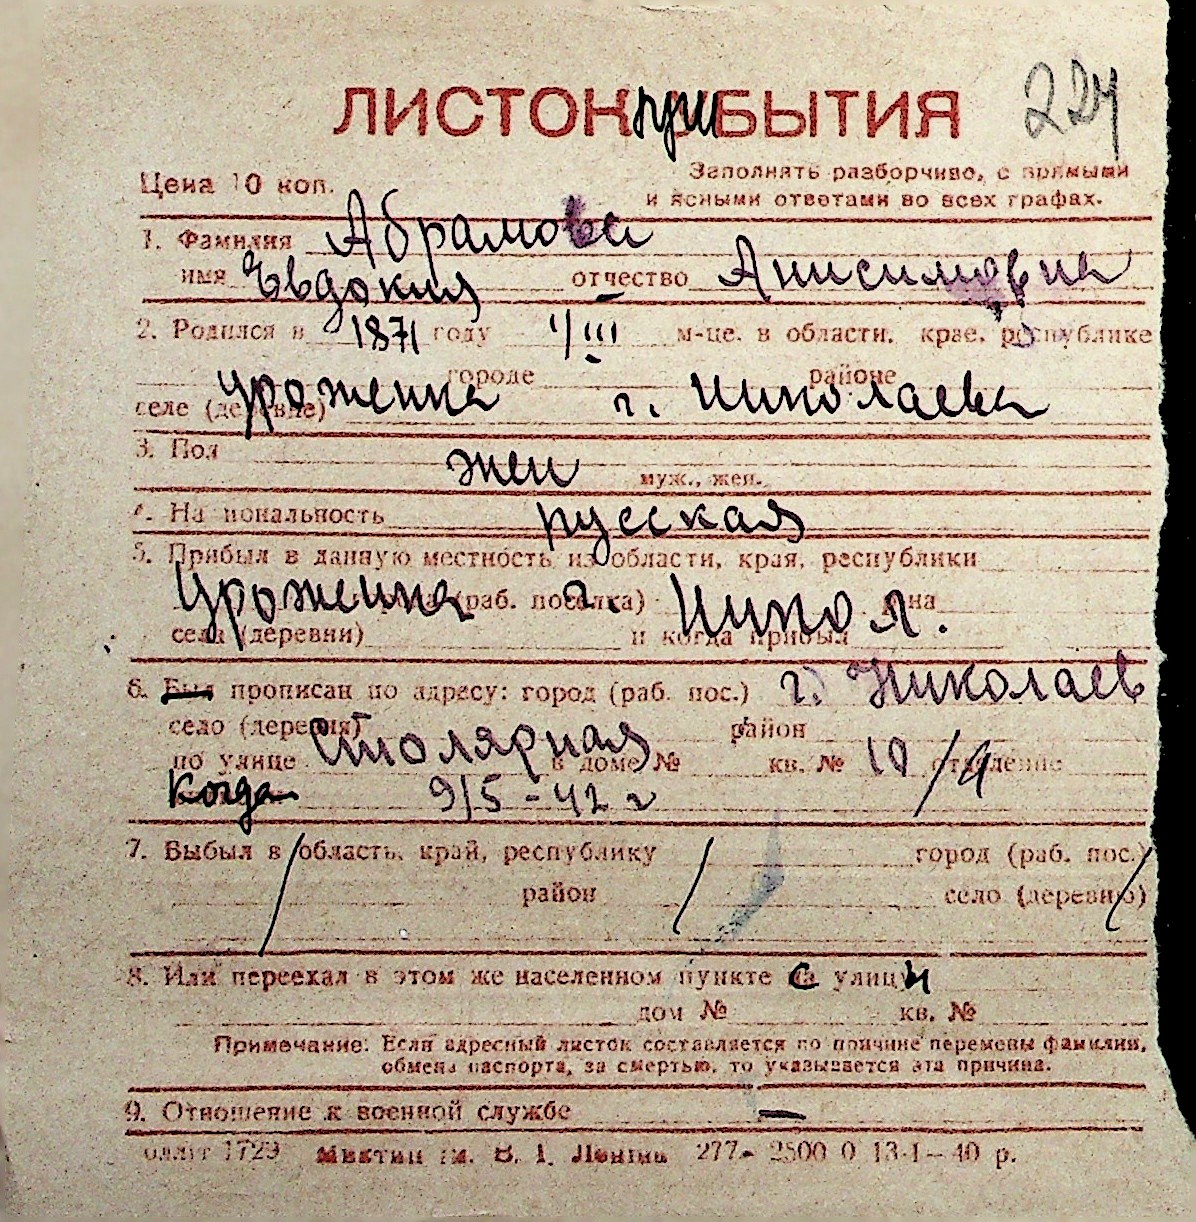 ЛИСТОК приБЫТИЯ 224
Цена 10 коп. Заполнять разборчиво, с прямыми
и ясными ответами во всех графах.
1. Фамилия Абрамова
имя Евдокия отчество Анисимовна
2. Родился в 1871 году 1/III м-це. в области, крае, республике
городе районе
уроженка г. Николаева
селе (деревне)
3. Пол жен муж., жен.
4. Национальность русская
5. Прибыл в данную местность из области, края, республики
Уроженка (раб. поселка) г. Никол.
села (деревни) и когда прибыл
6. Был прописан по адресу: город (раб. пос.) г. Николаев
село (деревня) район
по улице Столярная в доме № кв. № 10/4 отделение
Когда 9/5-42 г
7. Выбыл в область, край, республику город (раб. пос.)
район село (деревню)
8. Или переехал в этом же населенном пункте с улици
дом № кв. №
Примечание: Если адресный листок составляется по причине перемены фамилии,
обмена паспорта, за смертью, то указывается эта причина.
9. Отношение к военной службе —
1729 им. В. І. Леніна 277 - 2500 0 13-I-40 р.